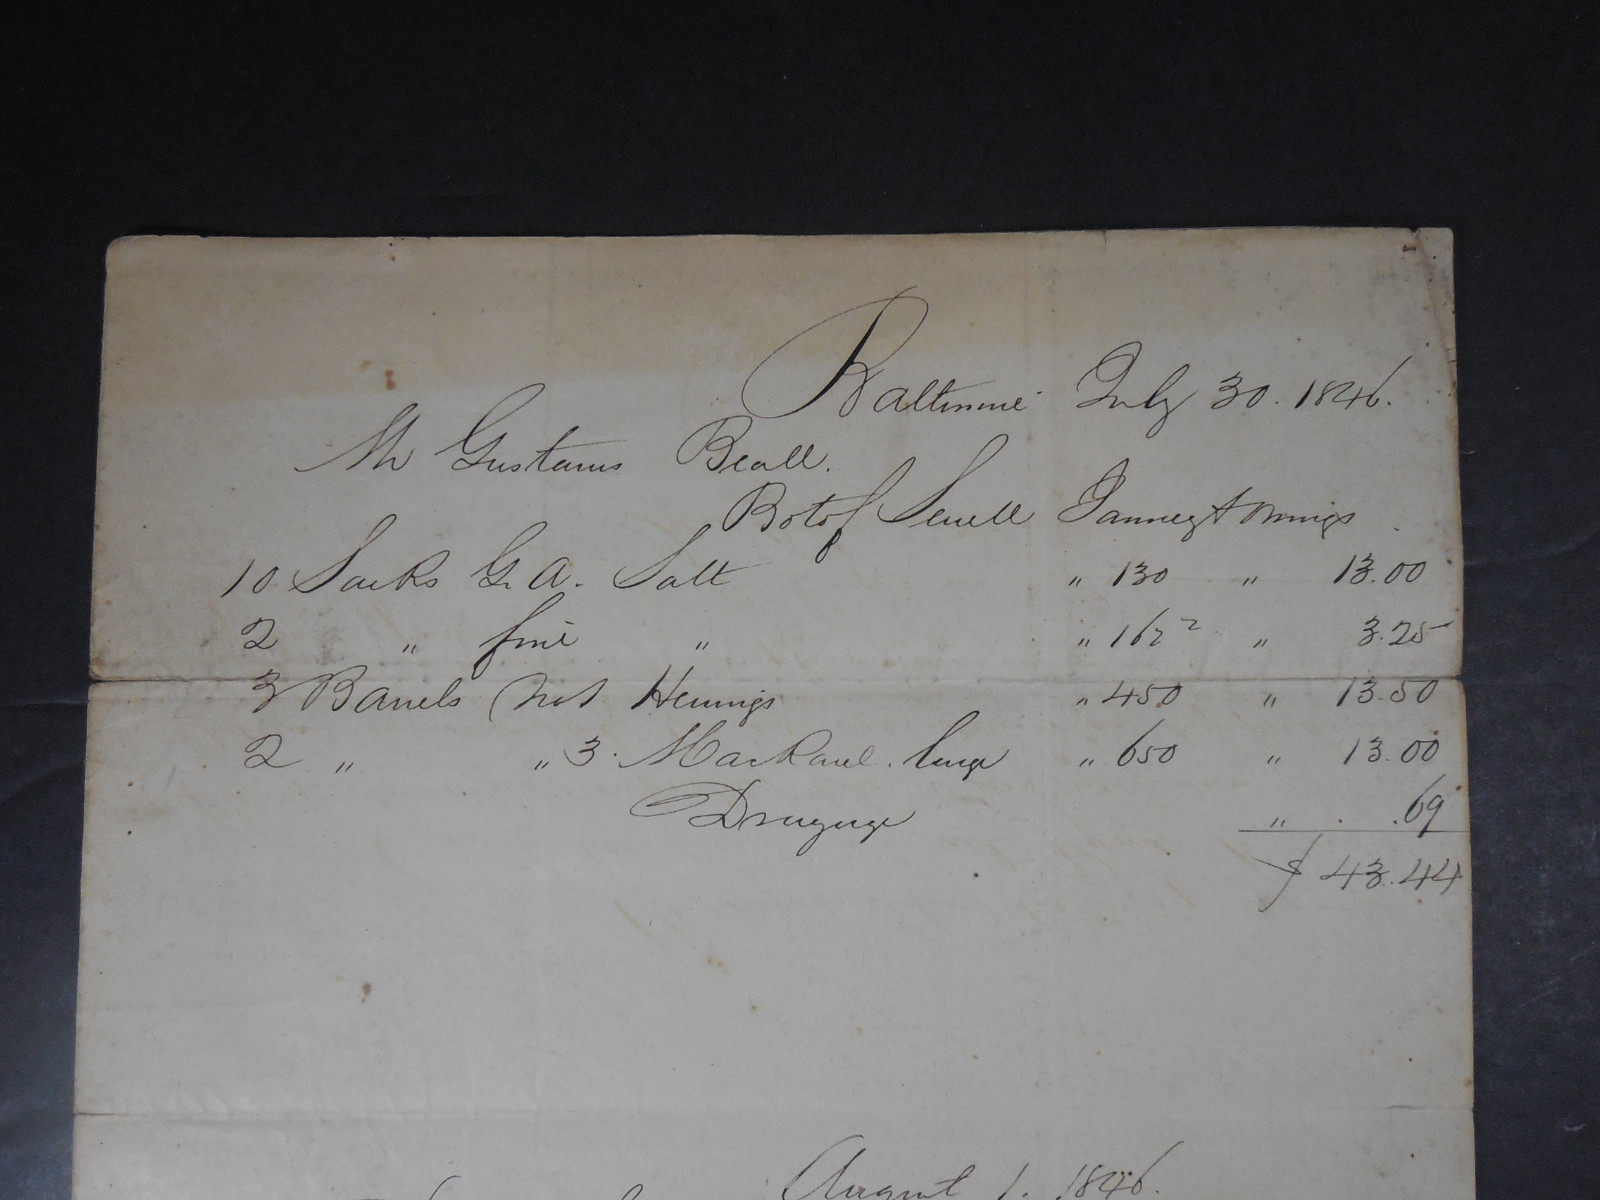 Baltimore July 30. 1846.
Mr Gustavus Beall.
Bot of Sewell Janney & Owings
10 Sacks G. A. Salt " 130 " 13.00
2 " fine " " 162 2 " 3.25
3 Barrels No 1 Herrings " 450 " 13.50
2 " " 3. Mackarel. large " 650 " 13.00
Drayage " . .69
$ 43.44
August 1. 1846.